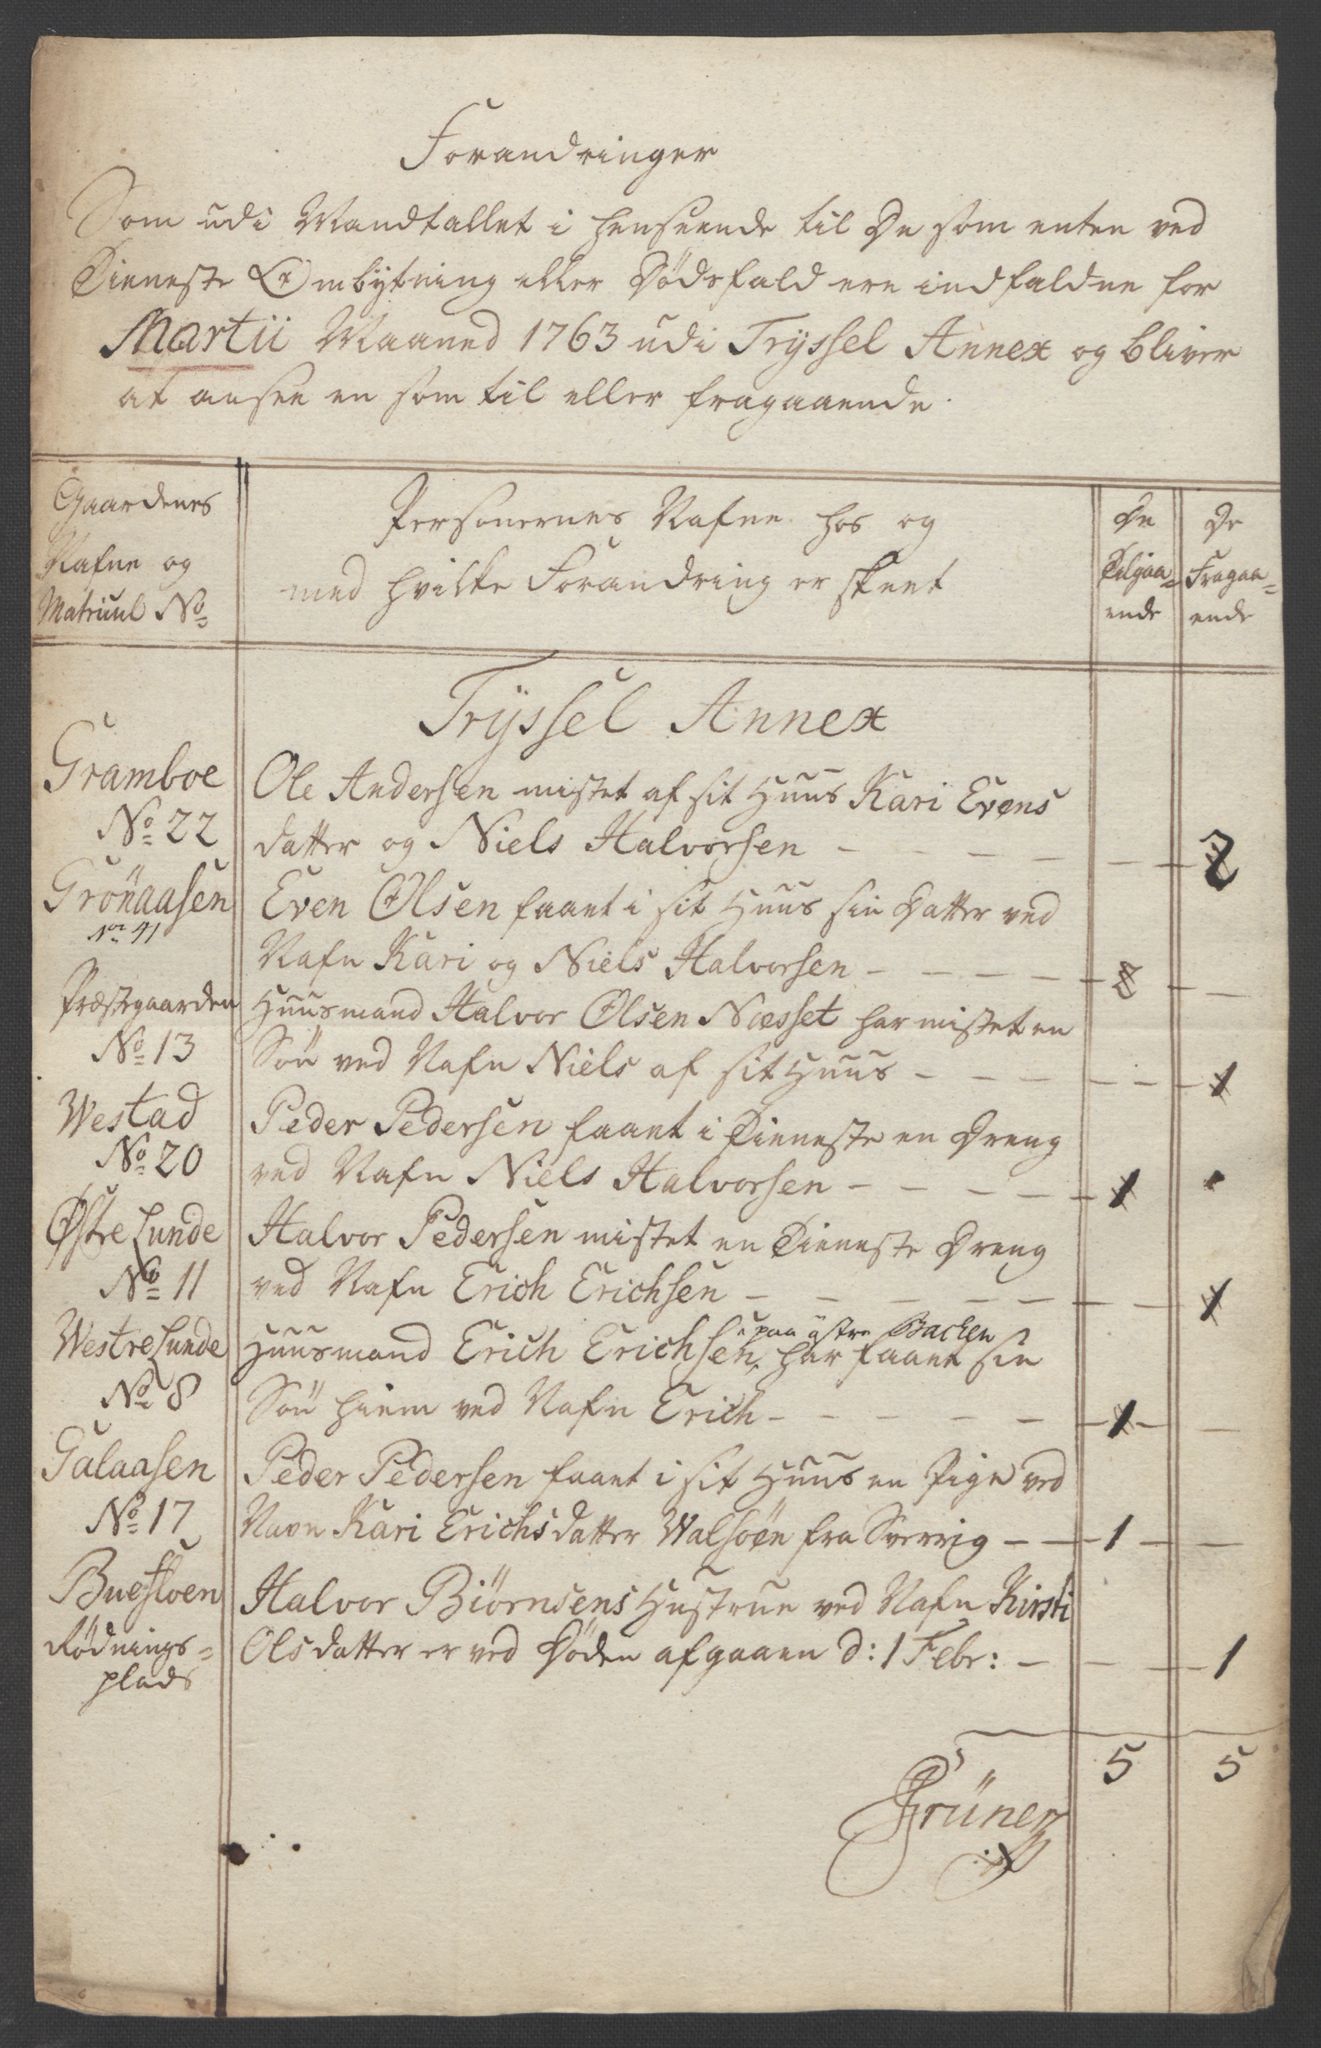 Forandringer
Som udi Mandtallet i henseende til De som enten ved
Tieneste Ombytning eller Dødsfald ere indfaldne for
Martii Maaned 1763 udi Tryssel Annex og bliver
at ansee en som til eller fragaaende.
Gaardenes Nafne og Matricul No
Personernes Nafne hos og
med hvilke Forandring er skeet
De Tilgaa=ende
De Fragaa=ende
Tryssel Annex
Gramboe Ole Andersen mistet af sit Huus Kari Evens
No 22 datter og Niels Halvorsen - - - - - - 2
Grönaasen Even Olsen faaet i sit Huus sin Datter ved
No 41 Nafn Kari og Niels Halvorsen - - - - - 2 -
Præstegaarden Huusmand Halvor Olsen Næsset har mistet en
No 13 Sön ved Nafn Niels af sit Huus - - - - - 1
Westad Peder Pedersen faaet i Tieneste en Dreng
No 20 ved Nafn Niels Halvorsen - - - - - 1
Østre Lunde Halvor Pedersen mistet en Tieneste Dreng
No 11 ved Nafn Erich Erichsen - - - - - - 1
Westre Lunde Huusmand Erich Erichsen, paa östre Backen har faaet sin
No 8 Sön hiem ved Nafn Erich - - - - - - 1 -
Galaasen Peder Pedersen faaet i sit Huus en Pige ved
No 17 Navn Kari Erichsdatter Walsöen fra Sverrig - - 1 -
Buefloen Halvor Biörnsens Hustrue ved Nafn Kirsti
Rödnings= Olsdatter er ved Döden afgaaen d: 1 Febr: - - 1
plads
5 5
Grüner